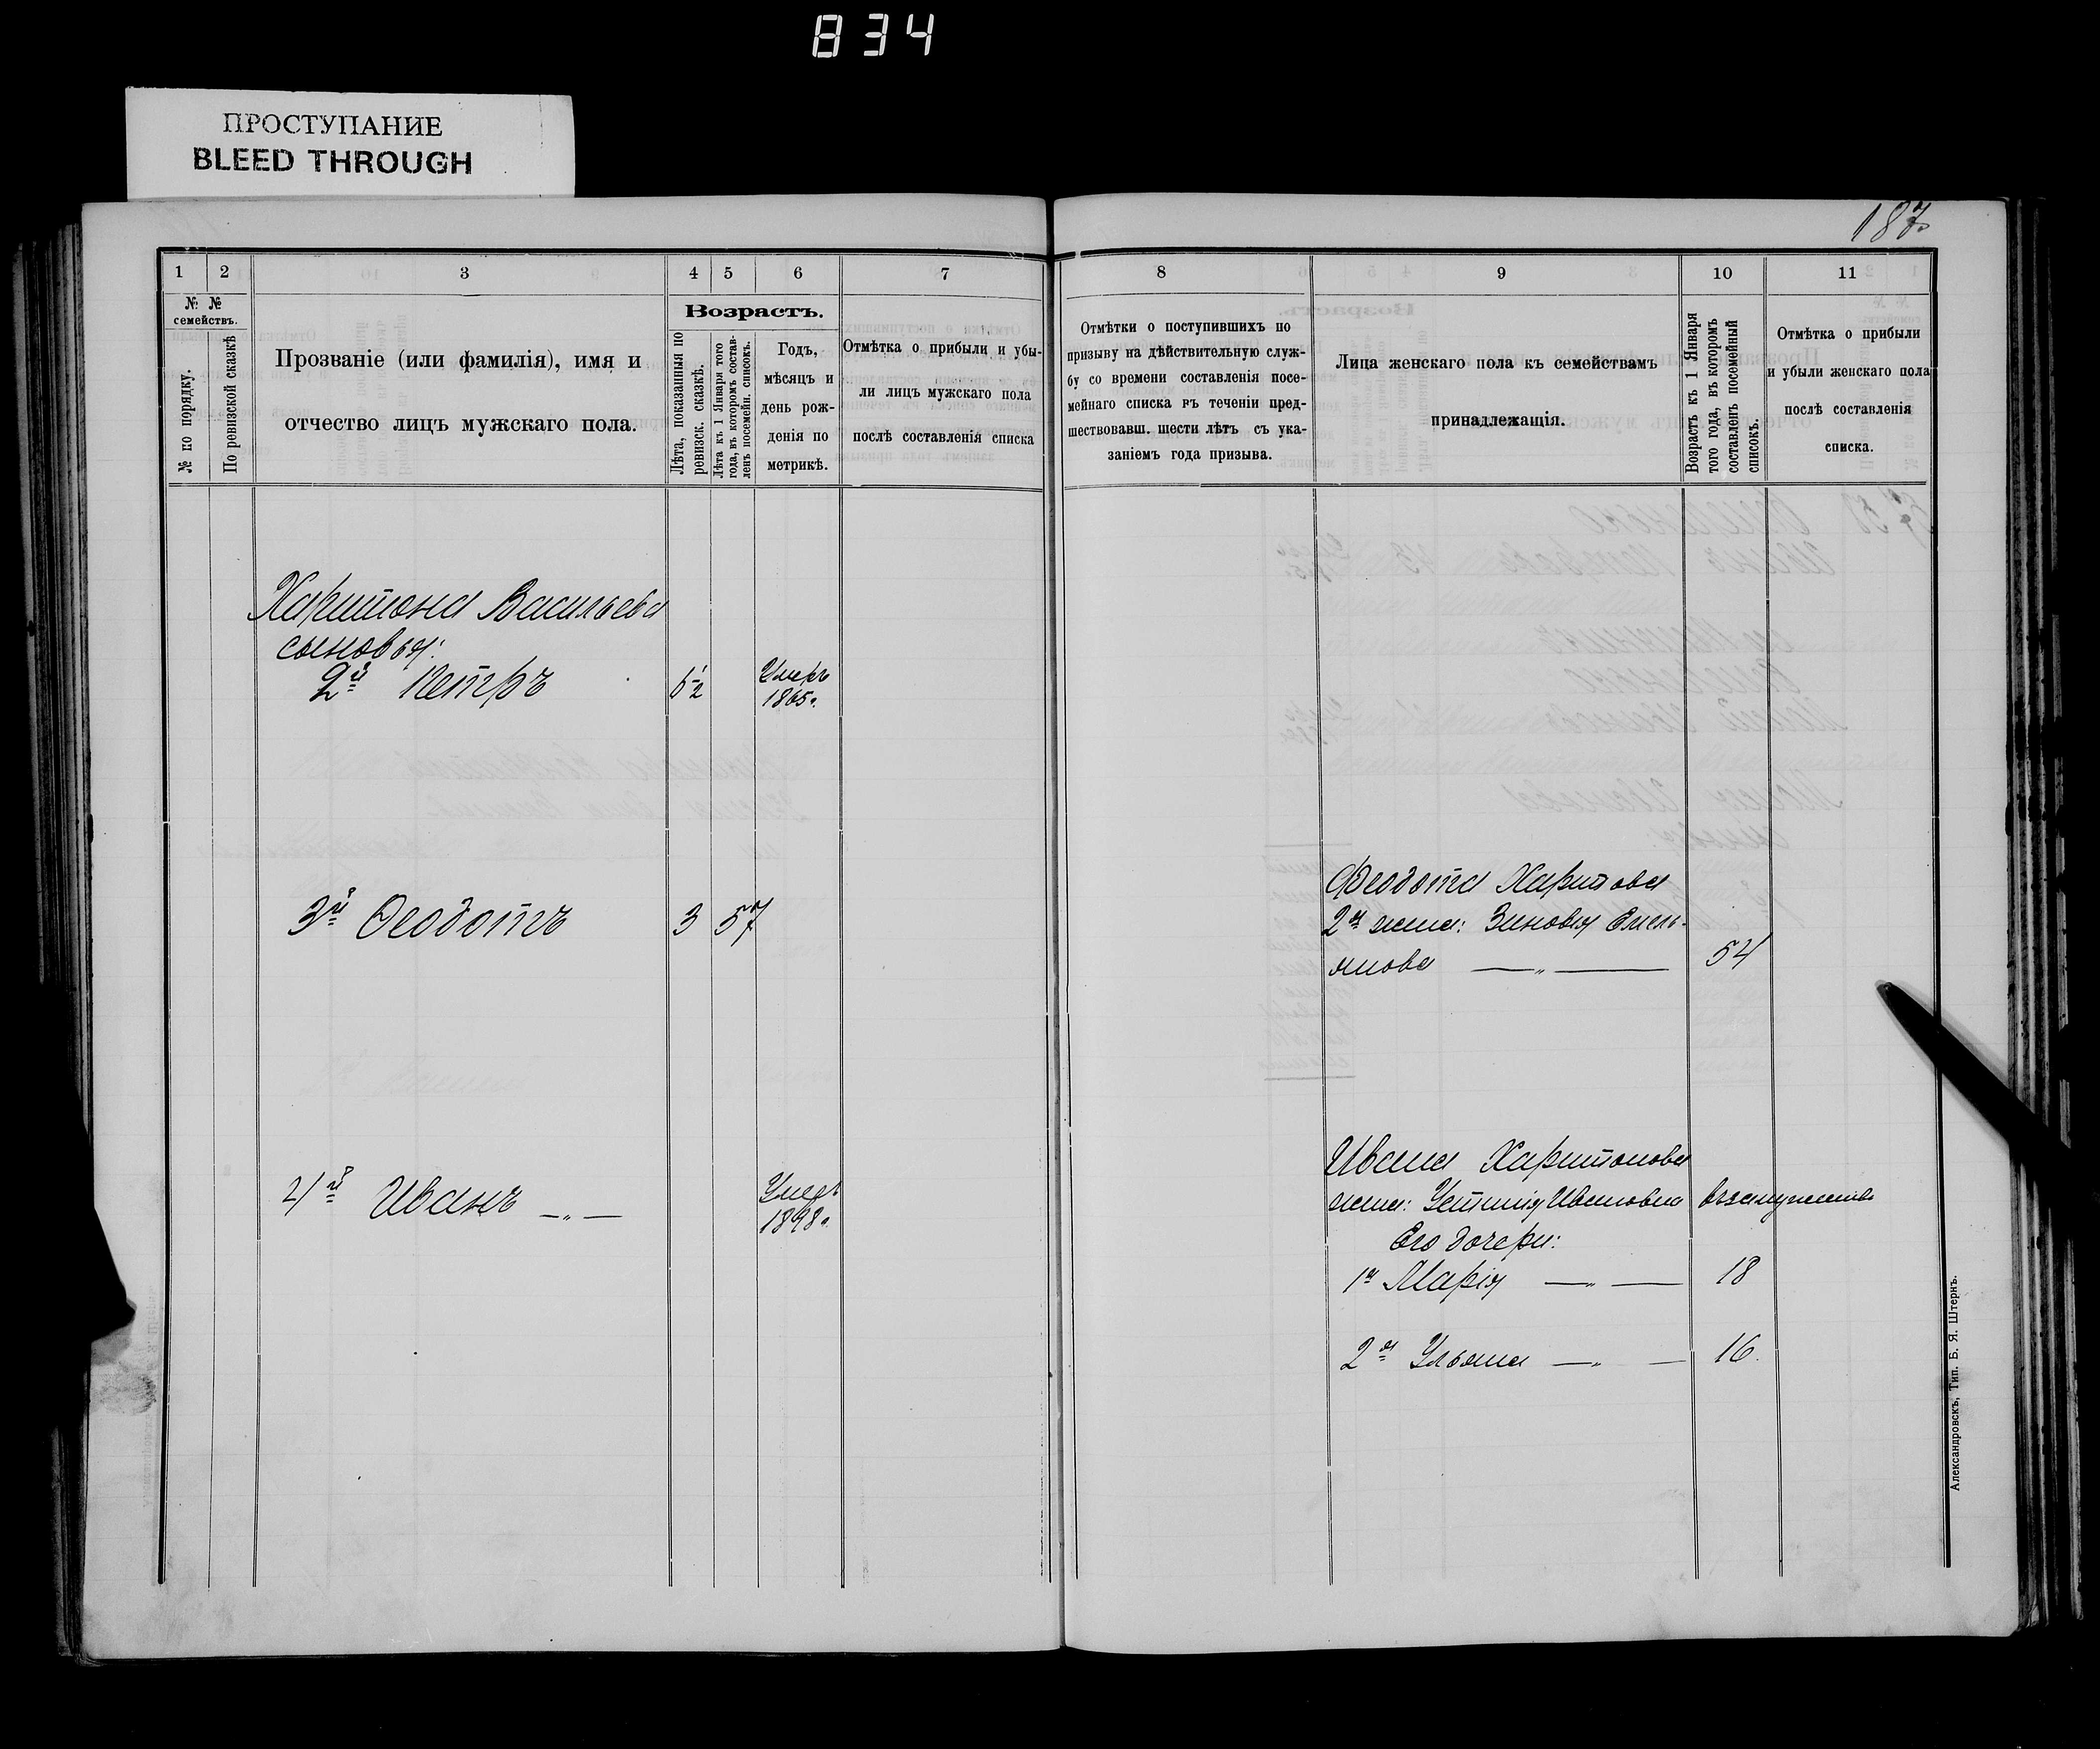 834
ПРОСТУПАНИЕ
BLEED THROUGH
187.
1
2
3
4
5
6
7
№ №
семействъ.
№ по порядку.
По ревизской сказкѣ
Прозваніе (или фамилія), имя и
отчество лицъ мужскаго пола.
Возрастъ.
Лѣта, показанныя по
ревизск. сказкѣ.
Лѣта къ 1 Января того
года, въ которомъ состав-
ленъ посемейн. списокъ.
Годъ,
мѣсяцъ и
день рож-
денія по
метрикѣ.
Отмѣтка о прибыли и убы-
ли лицъ мужскаго пола
послѣ составленія списка
Харитона Васильева
сыновья:
2й Петръ
1/2
Умеръ
1865г.
3й Ѳеодотъ 3 57
4й Иванъ —„—
Умеръ
1898г.
8
9
10
11
Отмѣтки о поступившихъ по
призыву на дѣйствительную служ-
бу со времени составленія посе-
мейнаго списка въ теченіи пред-
шествовавш. шести лѣтъ съ ука-
заніемъ года призыва.
Лица женскаго пола къ семействамъ
принадлежащія.
Возрастъ къ 1 Января
того года, въ которомъ
составленъ посемейный
списокъ.
Отмѣтка о прибыли
и убыли женскаго пола
послѣ составленія
списка.
Феодота Харитова
2я жена: Зиновія Емель-
янова —„— 54
Ивана Харитонова
жена: Устинія Ивановна въ замужествѣ
Его дочери:
1я Марія —„— 18
2я Ульяна —„— 16.
Александровскъ, Тип. Б. Я. Штернъ.